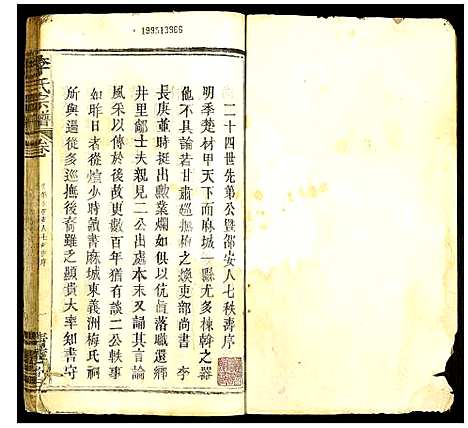 199513966
二十四世先第公暨邵安人七秩壽序
明季楚材甲天下而麻城一縣尤多棟幹之器
他不具論若甘肅巡撫梅之煥吏部尚書 李
長庚同時挺出勲業爛如俱以伉直落職還鄉
井里鄒士夫親見二公出處本末又誦其言論
風采以傳於後故更數百年猶有談二公軼事
如昨日者從煌少時讀書麻城東義洲梅氏祠
所與過從多巡撫後裔雖乏顯貴大率知書守
李氏宗譜 卷